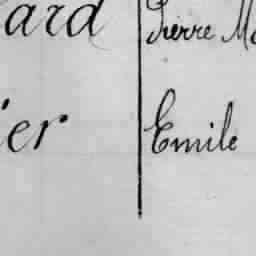 ard Pierre M
ier Emile